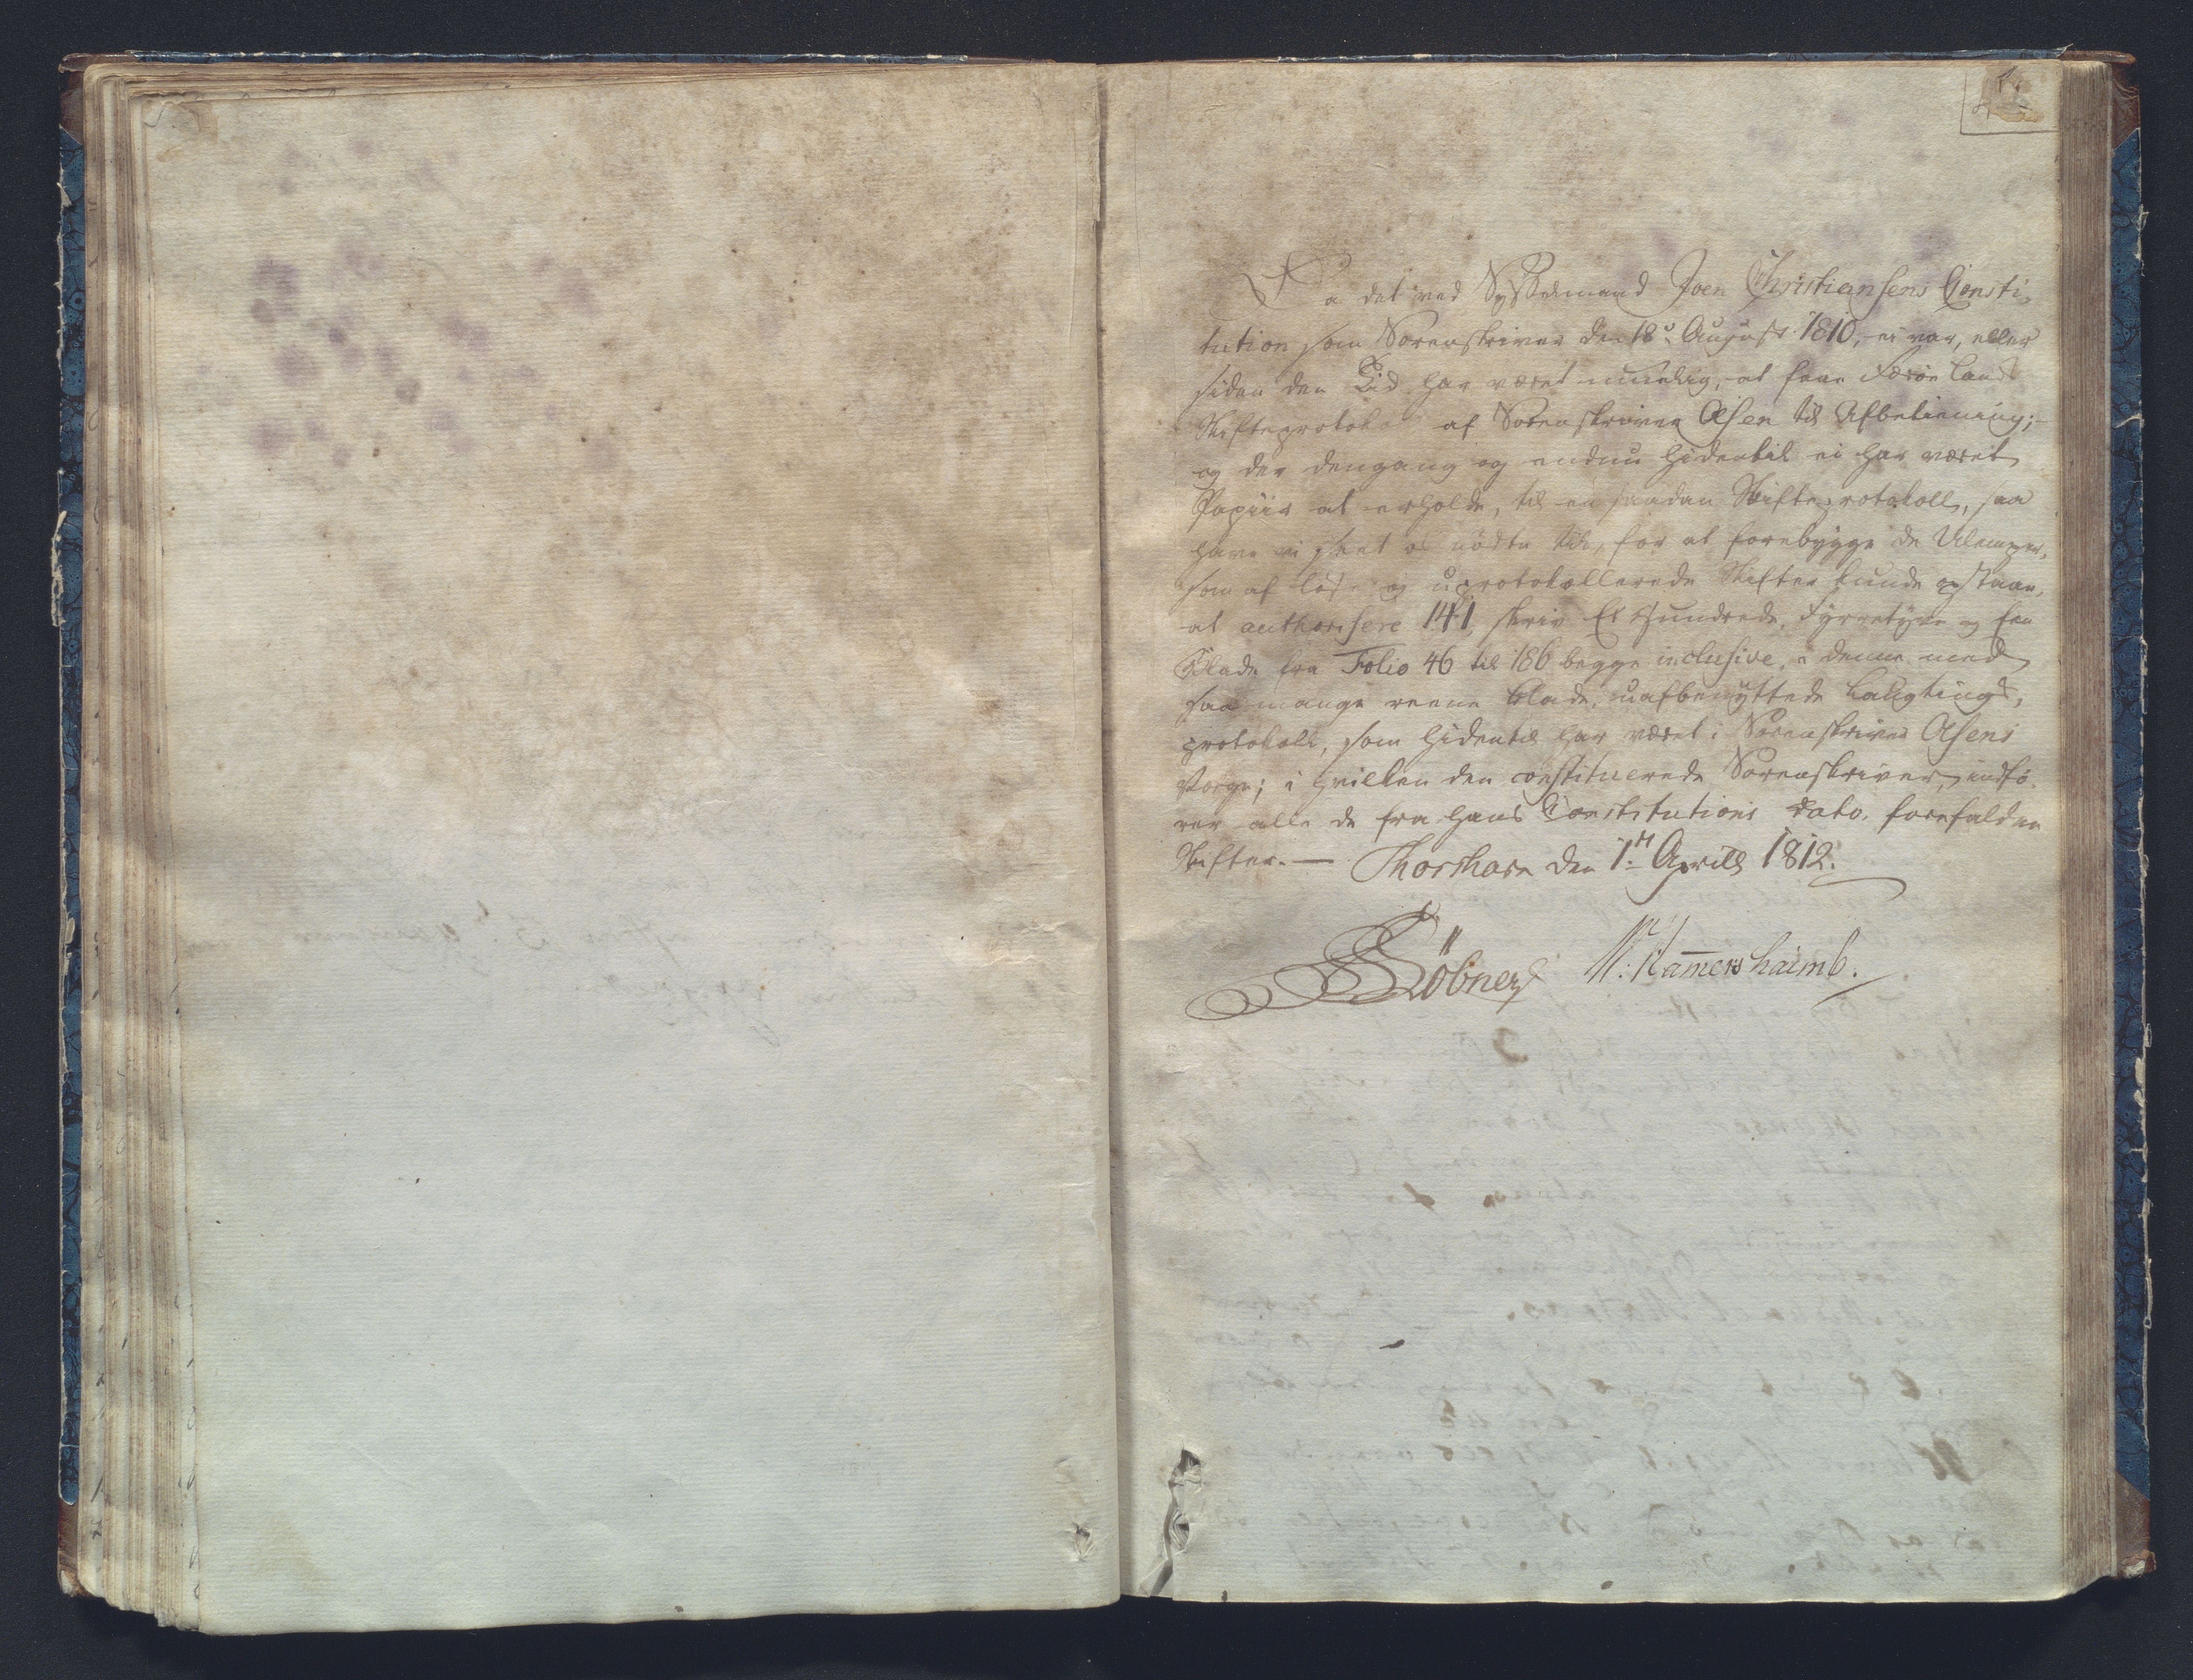 Da det ved Sysselmand Joen Christiansens Consti,
tution som Sorenskriver den 18de August 1810, ei var, eller
siden den Tid har været muelig, at faae Færøe Lands
Skifteprotokol af Sorenskriver Olsen til Afbetiening;-
og der dengang og endnu hidentil ei har været
Papiir at erholde, til en saadan Skifteprotokoll, saa
have vi seet os nødte til, for at forebygge de Ulemper,
som af løse og uprotokollerede Skifter kunde opstaae,
at authorisere 141 skriv Et Hundrede, Fyrretyve og Een
Blade fra Folio 46 til 186 begge inclusive, i denne med
saa mange reene Blade, uafbenyttede Laugtings,
protokoll, som hidentil har været i Sorenskriver Olsens
Værge; i hvilken den constituerede Sorenskriver, indfø-
rer alle de fra hans Constitutions Dato, forefaldne
Skifter. — Thorshavn den 1te Aprill 1812.
Løbner W: Hamershaimb.